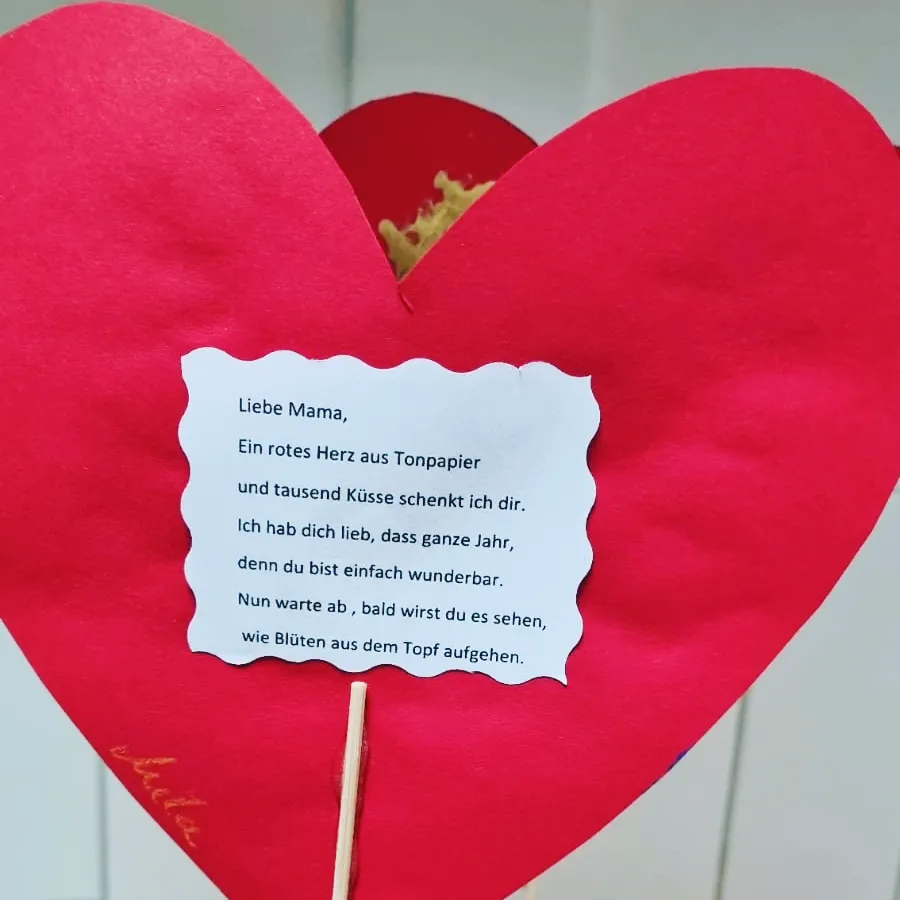 Liebe Mama,
Ein rotes Herz aus Tonpapier
und tausend Küsse schenkt ich dir.
Ich hab dich lieb, dass ganze Jahr,
denn du bist einfach wunderbar.
Nun warte ab , bald wirst du es sehen,
wie Blüten aus dem Topf aufgehen.